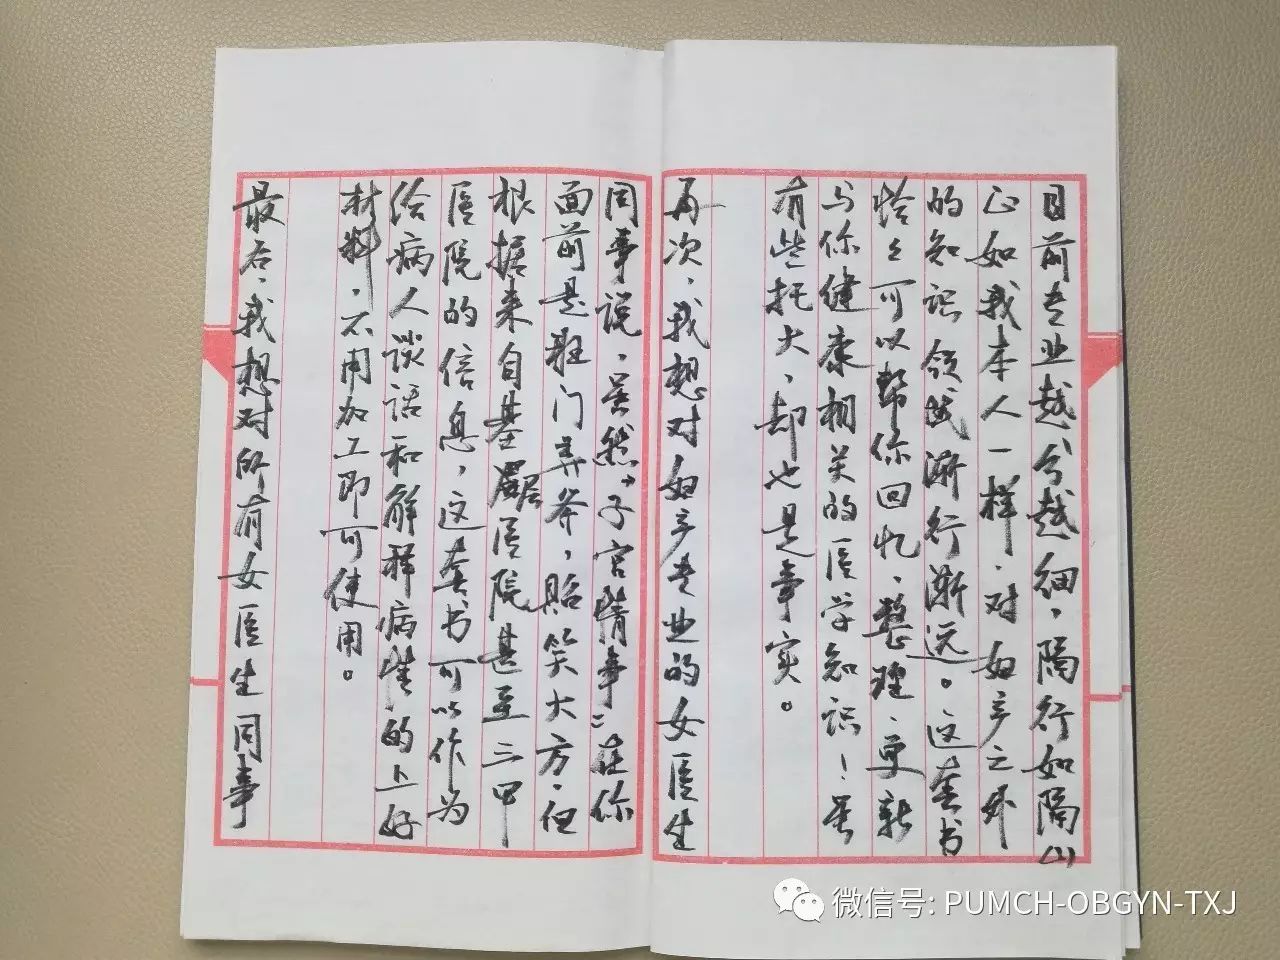 目前专业越分越细，隔行如隔山
正如我本人一样，对妇产之外
的知识领域渐行渐远。这套书
恰恰可以帮你回忆、整理、更新
与你健康相关的医学知识！虽
有些托大，却也是事实。
再次，我想对妇产专业的女医生
同事说，虽然“子宫情事”在你
面前是班门弄斧，贻笑大方，但
根据来自基层医院甚至三甲
医院的信息，这套书可以作为
给病人谈话和解释病情的上好
材料，不用加工即可使用。
最后，我想对所有女医生同事
微信号: PUMCH-OBGYN-TXJ